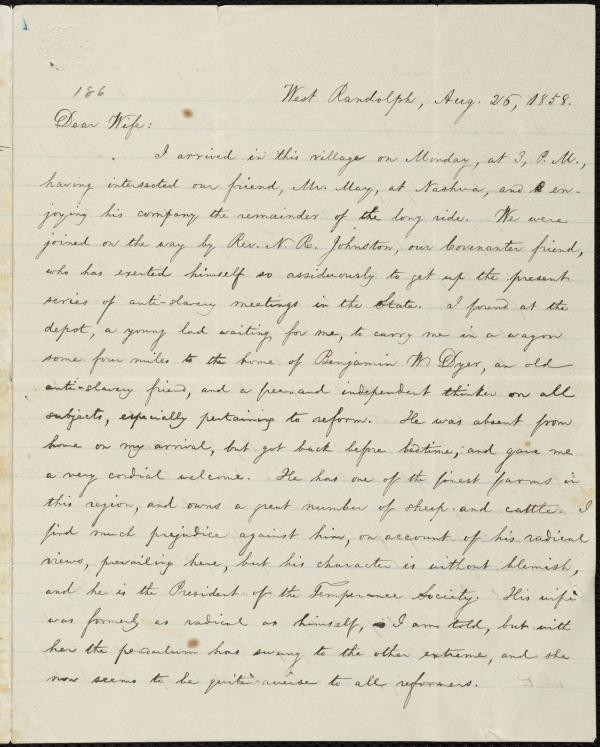 186
West Randolph, Aug. 26, 1858.
Dear Wife:
I arrived in this village on Monday, at 3, P. M.,
having intersected our friend, Mr. May, at Nashua, and en-
joying his company the remainder of the long ride. We were
joined on the way by Rev. N. R. Johnston, our Covenanter friend,
who has exerted himself so assiduously to get up the present
series of anti-slavery meetings in the State. I found at the
depot, a young lad waiting for me, to carry me in a wagon
some four miles to the home of Benjamin W. Dyer, an old
anti-slavery friend, and a free and independent thinker on all
subjects, especially pertaining to reform. He was absent from
home on my arrival, but got back before bedtime, and gave me
a very cordial welcome. He has one of the finest farms in
this region, and owns a great number of sheep and cattle. I
find much prejudice against him, on account of his radical
views, prevailing here, but his character is without blemish,
and he is the President of the Temperance Society. His wife
was formerly as radical as himself, I am told, but with
her the pendulum has swung to the other extreme, and she
now seems to be quite averse to all reformers.